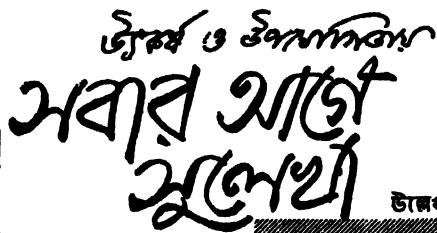 উৎকর্ষ ও উপযোগিতায়
সবার আগে
সুলেখা